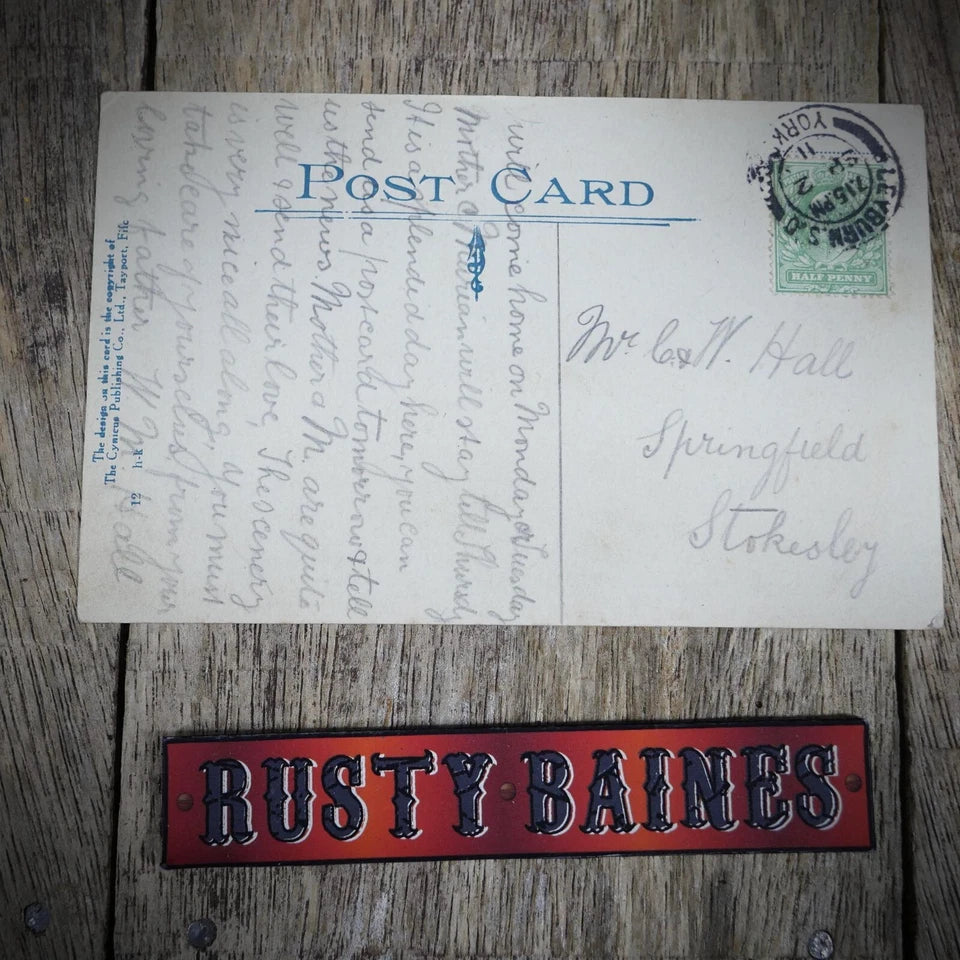 POST CARD
will come home on Monday or Tuesday
Mother & will stay till
It is a splended day here, you can
send us a postcard tomorrow & tell
us the news. Mother & M. are quite
well & send their love, The scenery
is very nice all along, you must
take care of yourselves from your
loving Father W M Hall
The design on this card is the copyright of
The Cynicus Publishing Co., Ltd., Tayport, Fife
12 h-k
LEYBURN S.O
YORK
7.15PM
2
11
HALF PENNY
Mr C & W. Hall
Springfield
Stokesley
RUSTY BAINES